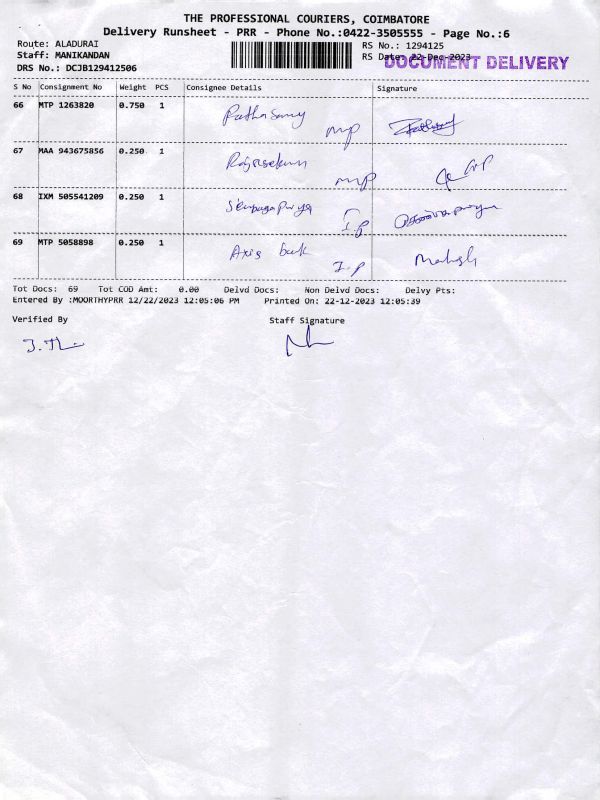 THE PROFESSIONAL COURIERS, COIMBATORE
Delivery Runsheet - PRR - Phone No.:0422-3505555 - Page No.:6
Route: ALADURAI RS No.: 1294125
Staff: MANIKANDAN RS Date: 22-Dec-2023
DOCUMENT DELIVERY
DRS No.: DCJB129412506
S No Consignment No Weight PCS Consignee Details Signature
66 MTP 1263820 0.750 1
MP
67 MAA 943675856 0.250 1 Rajasekaran
MP
68 IXM 505541209 0.250 1 Senbagapriya
I.P
69 MTP 5058898 0.250 1 Axis bank
I.P Mahesh
Tot Docs: 69 Tot COD Amt: 0.00 Delvd Docs: Non Delvd Docs: Delvy Pts:
Entered By :MOORTHYPRR 12/22/2023 12:05:06 PM Printed On: 22-12-2023 12:05:39
Verified By Staff Signature